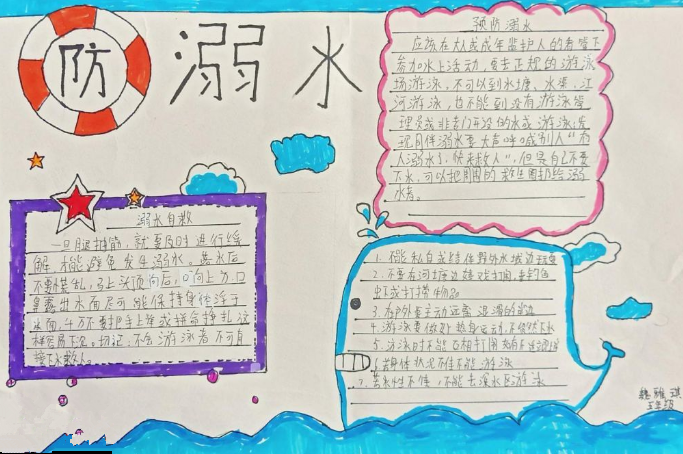 防溺水
预防溺水
应该在大人或成年监护人的看管下
参加水上活动,要去正规的游泳
场游泳,不可以到水塘、水渠、江
河游泳,也不能到没有游泳管
理员或非专门开设的水或游泳;发
现同伴溺水要大声呼喊别人"有
人溺水!快来救人",但是自己不要
下水,可以把周围的救生圈扔给溺
水者。
溺水自救
一旦腿抽筋,就要及时进行缓
解,才能避免发生溺水。落水后
不要慌乱,马上头顶向后,口向上方,口
鼻露出水面尽可能保持身体浮于
水面,千万不要把手上举或拼命挣扎,这
样容易下沉。切记:不会游泳者不可直
接下水救人。
1.不能私自或结伴野外水域边玩耍
2.不要在河塘边嬉戏打闹、钓鱼
虾或打捞物品
3.户外要主动远离
4.游泳要做好热身运动,不能下水
5.泳时不能互相打闹
6.身体状况不佳不能游泳
7.不能去深水区游泳
五年级